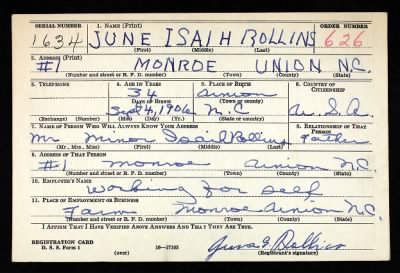 SERIAL NUMBER 1. NAME (Print) ORDER NUMBER
1634 JUNE ISAIH ROLLINS 626
(First) (Middle) (Last)
2. ADDRESS (Print)
#1 MONROE UNION N.C.
(Number and street or R. F. D. number) (Town) (County) (State)
3. TELEPHONE 4. AGE IN YEARS 5. PLACE OF BIRTH 6. COUNTRY OF CITIZENSHIP
34 Union
DATE OF BIRTH (Town or county)
Sept 4, 1906 N.C. U.S.A.
(Exchange) (Number) (Mo.) (Day) (Yr.) (State or country)
7. NAME OF PERSON WHO WILL ALWAYS KNOW YOUR ADDRESS 8. RELATIONSHIP OF THAT PERSON
Mr Rollins Father
(Mr., Mrs., Miss) (First) (Middle) (Last)
9. ADDRESS OF THAT PERSON
#1 Monroe Union N.C.
(Number and street or R. F. D. number) (Town) (County) (State)
10. EMPLOYER'S NAME
Working for self
11. PLACE OF EMPLOYMENT OR BUSINESS
Farm Monroe Union N.C.
(Number and street or R. F. D. number) (Town) (County) (State)
I AFFIRM THAT I HAVE VERIFIED ABOVE ANSWERS AND THAT THEY ARE TRUE.
REGISTRATION CARD
D. S. S. Form 1 16—17105 June I Rollins
(over) (Registrant's signature)